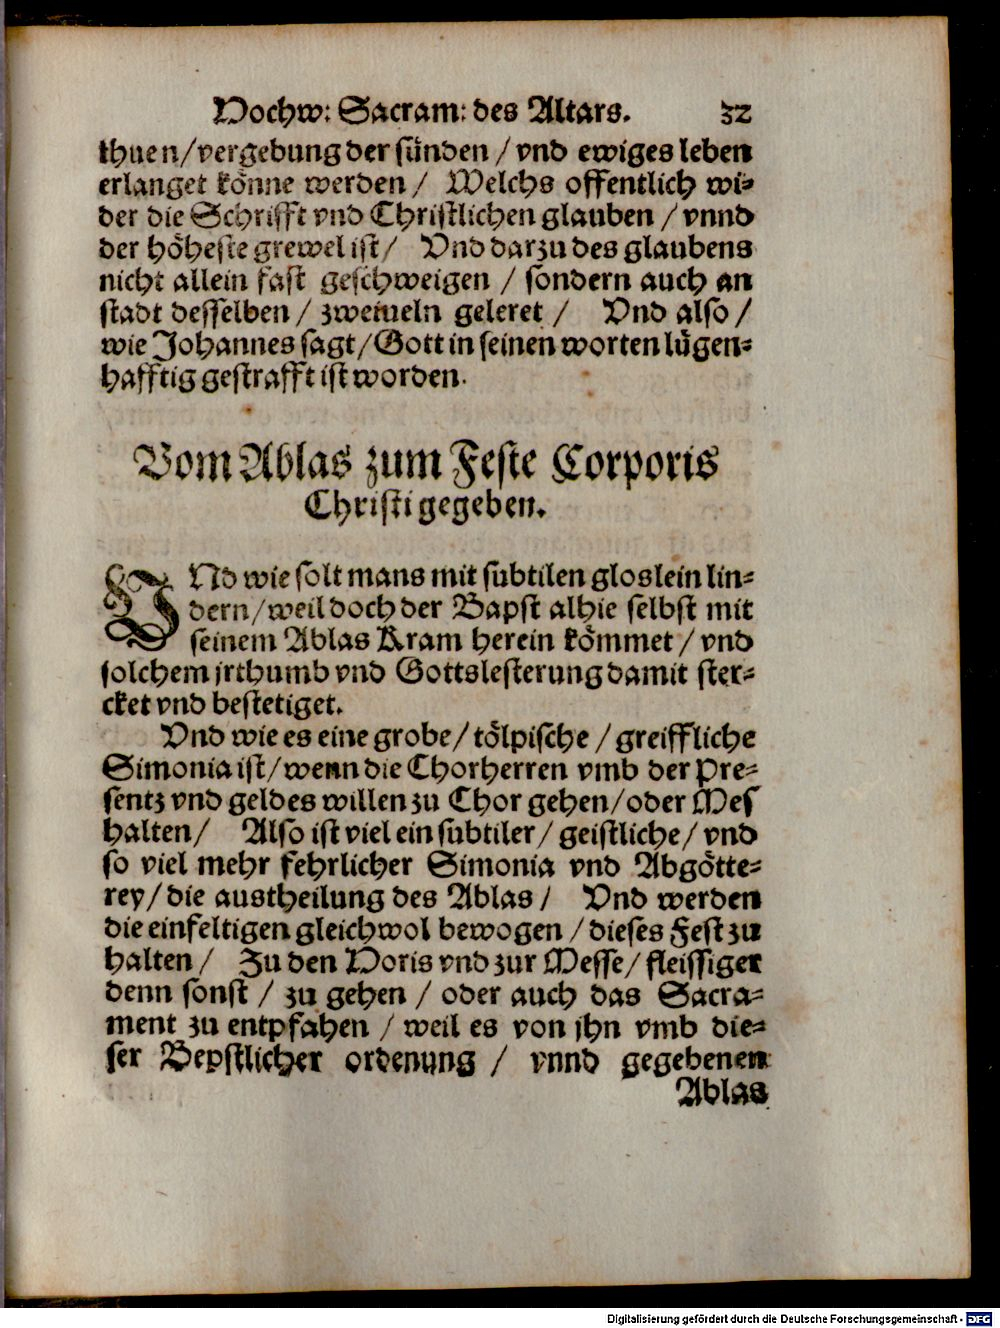 Hochw: Sacram: des Altars. 32
thuen/vergebung der sünden / vnd ewiges leben
erlanget könne werden / Welchs offentlich wi=
der die Schrifft vnd Christlichen glauben / vnnd
der höheste grewel ist / Vnd darzu des glaubens
nicht allein fast geschweigen / sondern auch an
stadt desselben / zweiueln geleret / Vnd also /
wie Johannes sagt / Gott in seinen worten lügen=
hafftig gestrafft ist worden.
Vom Ablas zum Feste Corporis
Christi gegeben.
VNd wie solt mans mit subtilen gloslein lin=
dern / weil doch der Bapst alhie selbst mit
seinem Ablas Kram herein kömmet / vnd
solchem jrthumb vnd Gottslesterung damit ster=
cket vnd bestetiget.
Vnd wie es eine grobe / tölpische / greiffliche
Simonia ist / wenn die Chorherren vmb der Pre=
sentz vnd geldes willen zu Chor gehen / oder Mes
halten / Also ist viel ein subtiler / geistliche / vnd
so viel mehr fehrlicher Simonia vnd Abgötte=
rey / die austheilung des Ablas / Vnd werden
die einfeltigen gleichwol bewogen / dieses Fest zu
halten / Zu den Horis vnd zur Messe / fleissiger
denn sonst / zu gehen / oder auch das Sacra=
ment zu entpfahen / weil es von jhn vmb die=
ser Bepstlicher ordenung / vnnd gegebenen
Ablas
Digitalisierung gefördert durch die Deutsche Forschungsgemeinschaft - DFG